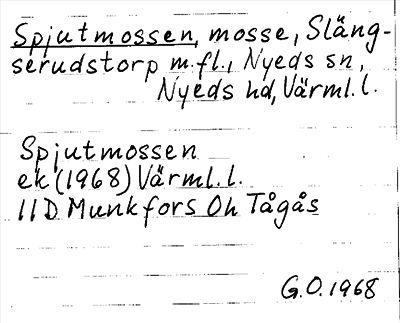 Spjutmossen, mosse, Släng-
serudstorp m.fl., Nyeds sn,
Nyeds hd, Värml.l.
Spjutmossen
ek (1968) Värml.l.
11D Munkfors Oh Tågås
G.O. 1968